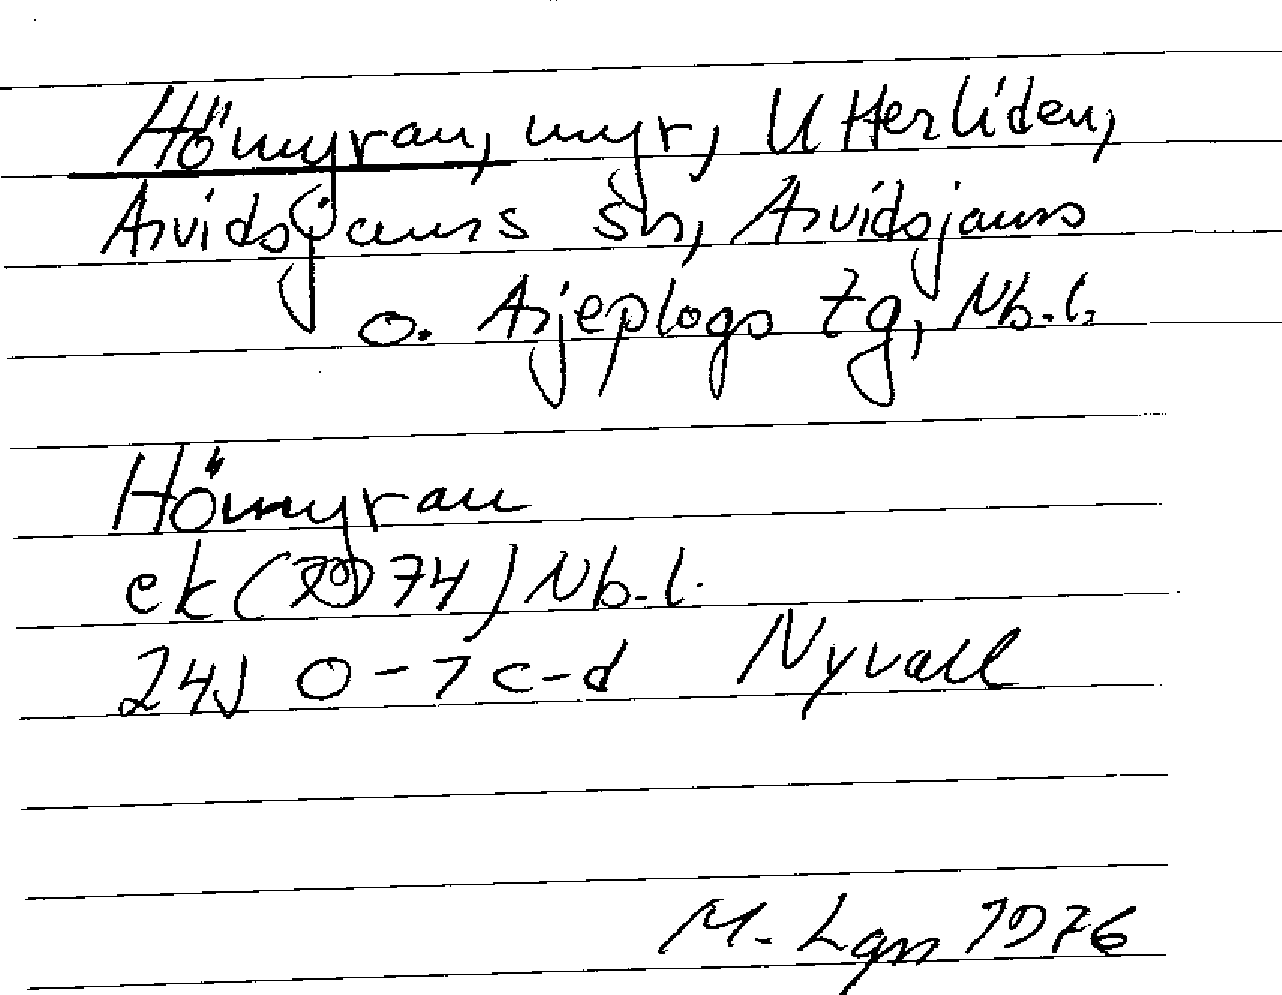 Hömyran, myr, U Herliden,
Arvidsjaurs sn, Arvidsjaurs
o. Arjeplogs tg, Nb.l.
Hömyran
ek (1974) Nb.l.
24J 0-7 c-d Nyvall
M. Lgn 1976